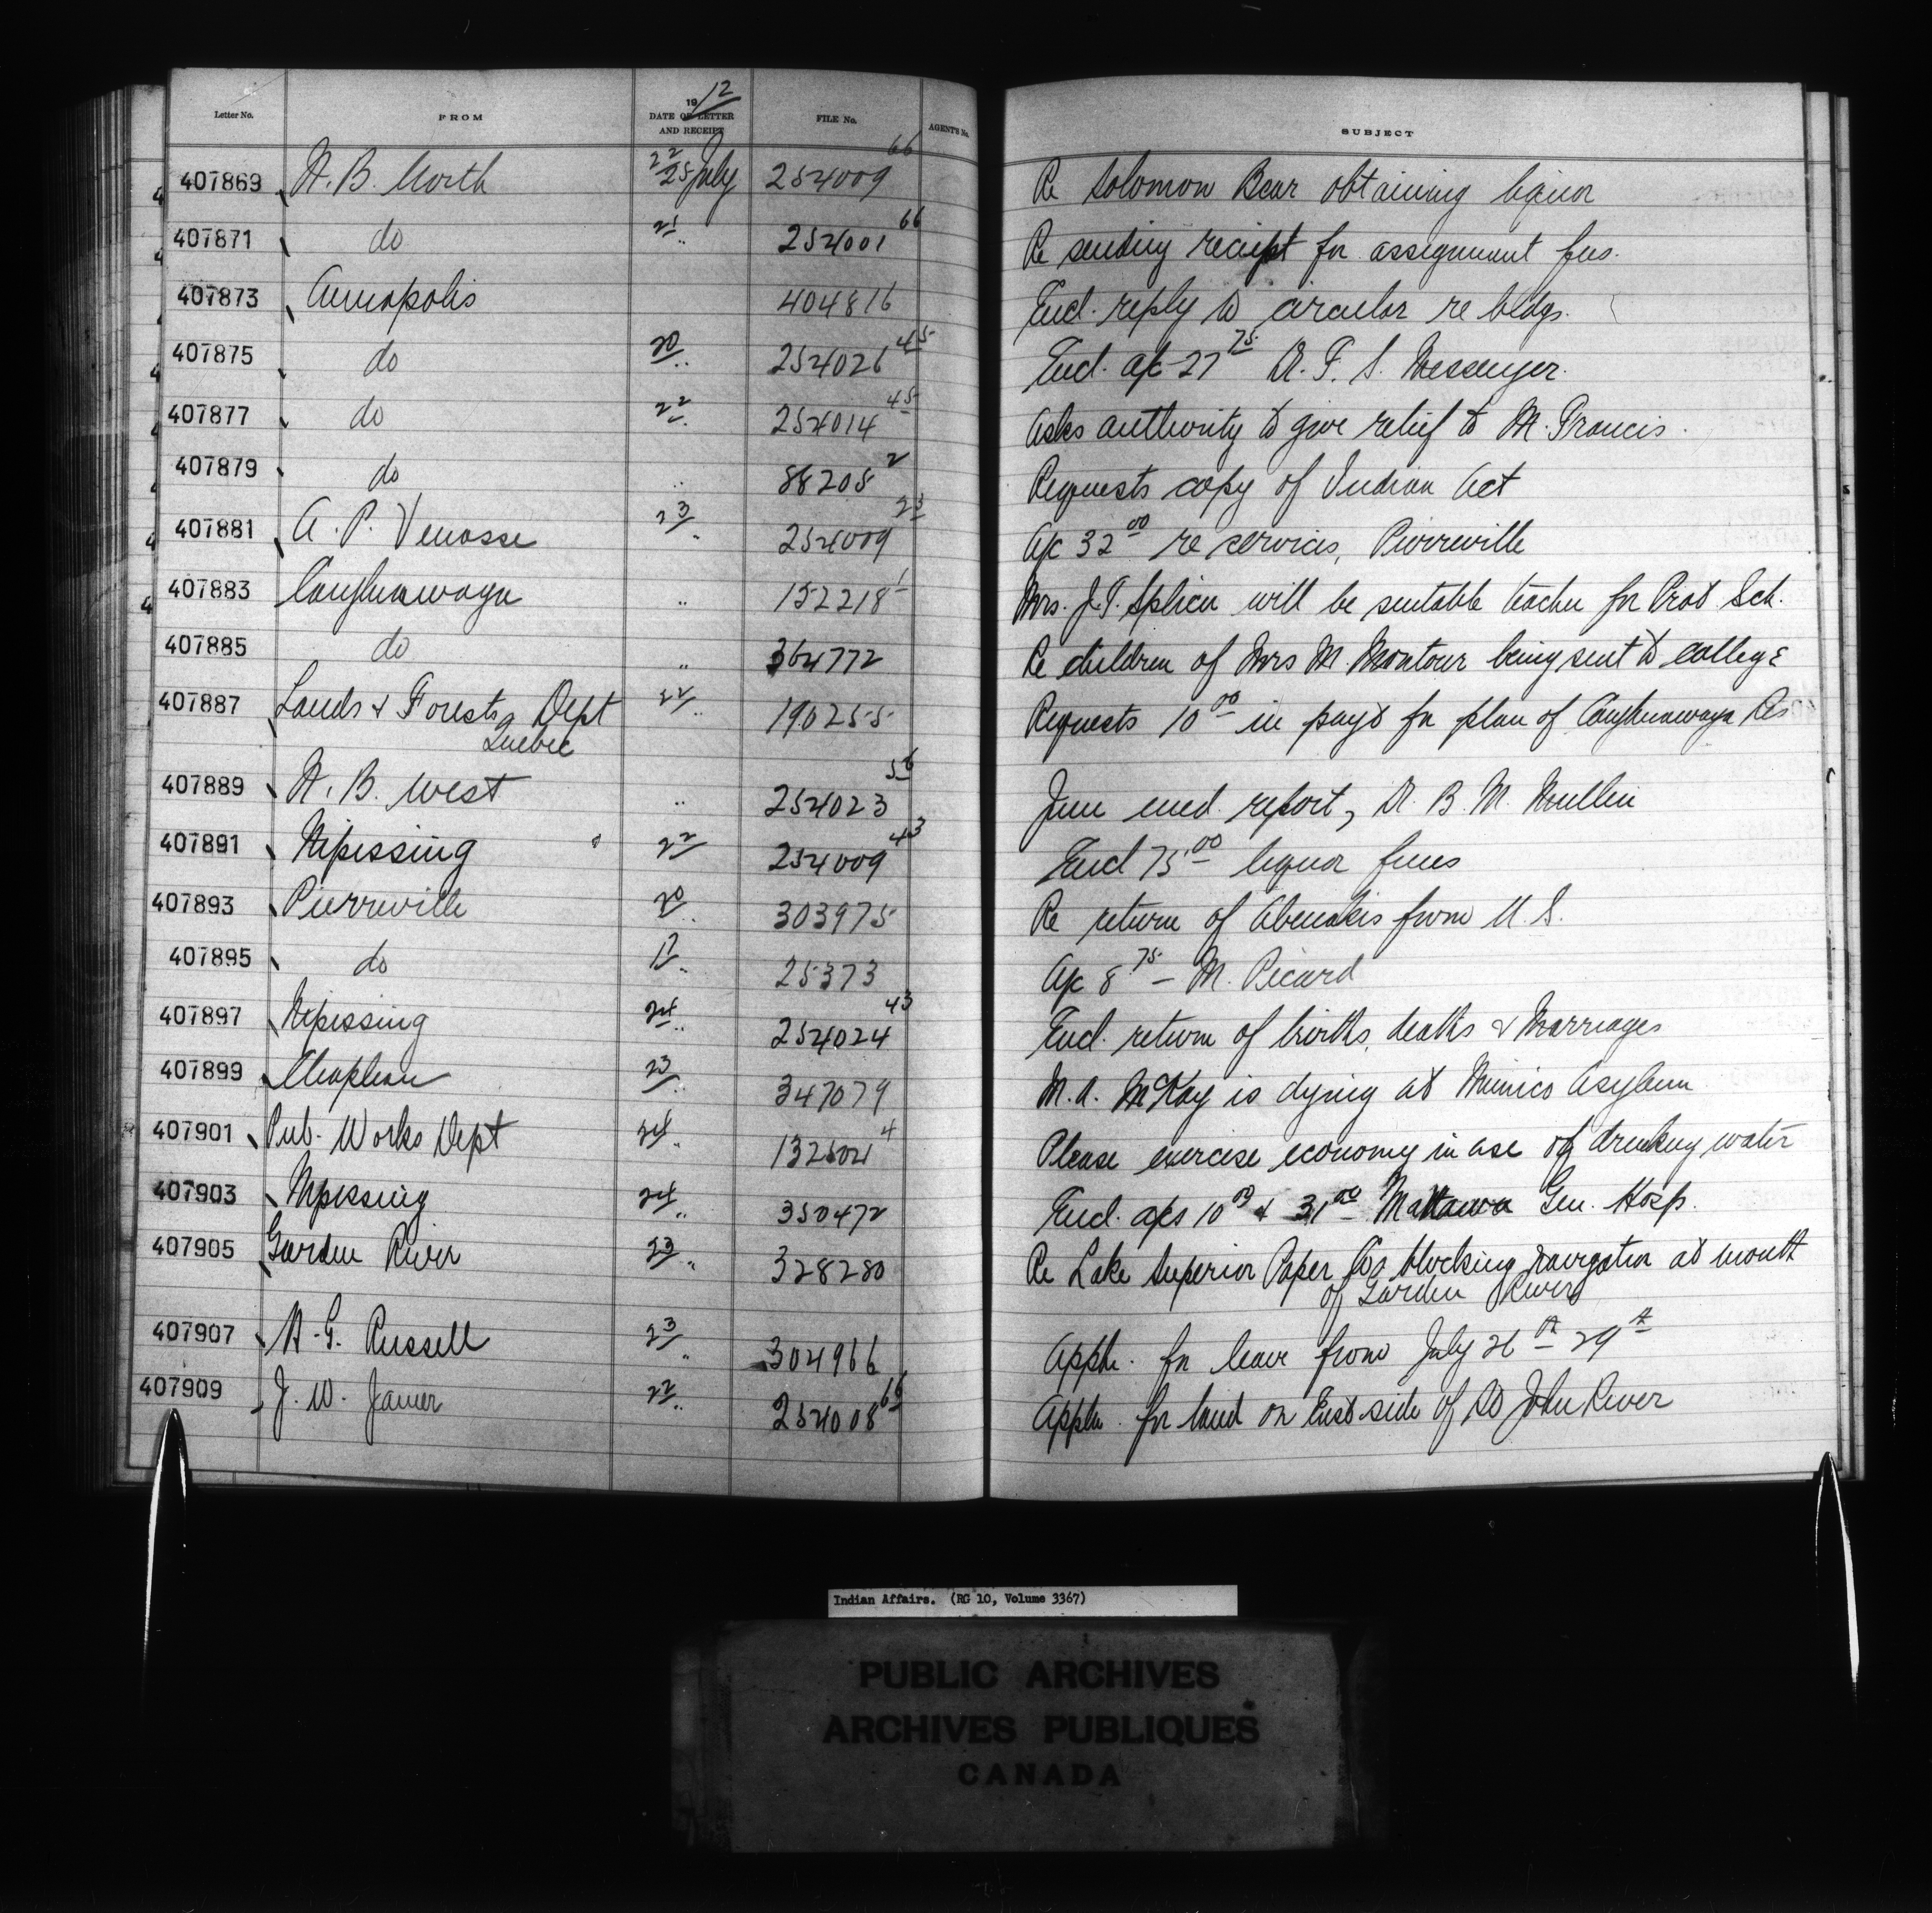 Letter No. FROM 1912 DATE OF LETTER AND RECEIPT FILE No. AGENT'S No. SUBJECT
407869 N. B. North 22/25 July 254009 66 Re Solomon Bear obtaining liquor
407871 do 21 " 254001 66 Re sending reciept for assignment fees.
407873 Annapolis 404816 Encl. reply to circular re bldgs.
407875 do 20 " 254026 45 Encl. a/c 27 75 Dr. F. S. Messenger.
407877 do 22 " 254014 45 Asks authority to give relief to M. Francis.
407879 do " 88208 2 Requests copy of Indian Act
407881 A. P. Venasse 23 " 254009 23 A/c 32 00 re services, Pierreville
407883 Caughnawaga " 152218 1 Mrs. J. T. will be suitable teacher for Prot Sch.
407885 do " 364772 Re children of Mrs M. Montour being sent to college
407887 Lands & Forests Dept 22 " 190255 Requests 10 00 in payt for plan of Caughnawaga Res
Quebec
407889 N. B. West " 254023 56 June med. report, Dr. B. M. Mullin
407891 Nipissing 22 254009 43 Encl 75 00 liquor fines
407893 Pierreville 20 " 303975 Re return of Abenakis from U. S.
407895 do 17 " 25373 A/c 8 75 – M. Picard
407897 Nipissing 24 " 254024 43 Encl. return of births, deaths & Marriages
407899 Chapleau 23 " 347079 M. A. McKay is dying at Mimico Asylum
407901 Pub. Works Dept 24 " 4 Please exercise economy in use of drinking water
407903 Nipissing 24 " 350472 Encl. a/cs 10 00 & 31 00 Mattawa Gen. Hosp.
407905 Garden River 23 " 328280 Re Lake Superior Paper Co blocking navigation at mouth
of Garden River
407907 A. G. Russell 23 " 304966 Appln. for leave from July 26th – 29th
407909 J. W. 22 " 254008 66 Appln. for land on East side of St John River
Indian Affairs. (RG 10, Volume 3367)
PUBLIC ARCHIVES
ARCHIVES PUBLIQUES
CANADA